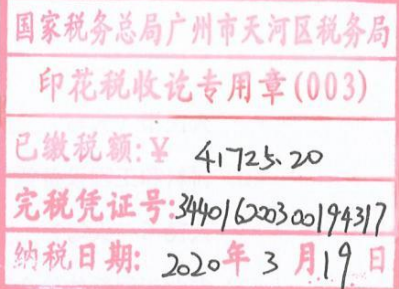 国家税务总局广州市天河区税务局
印花税收讫专用章(003)
已缴税额:¥ 41725.20
完税凭证号:344016200300194317
纳税日期: 2020年3月19日